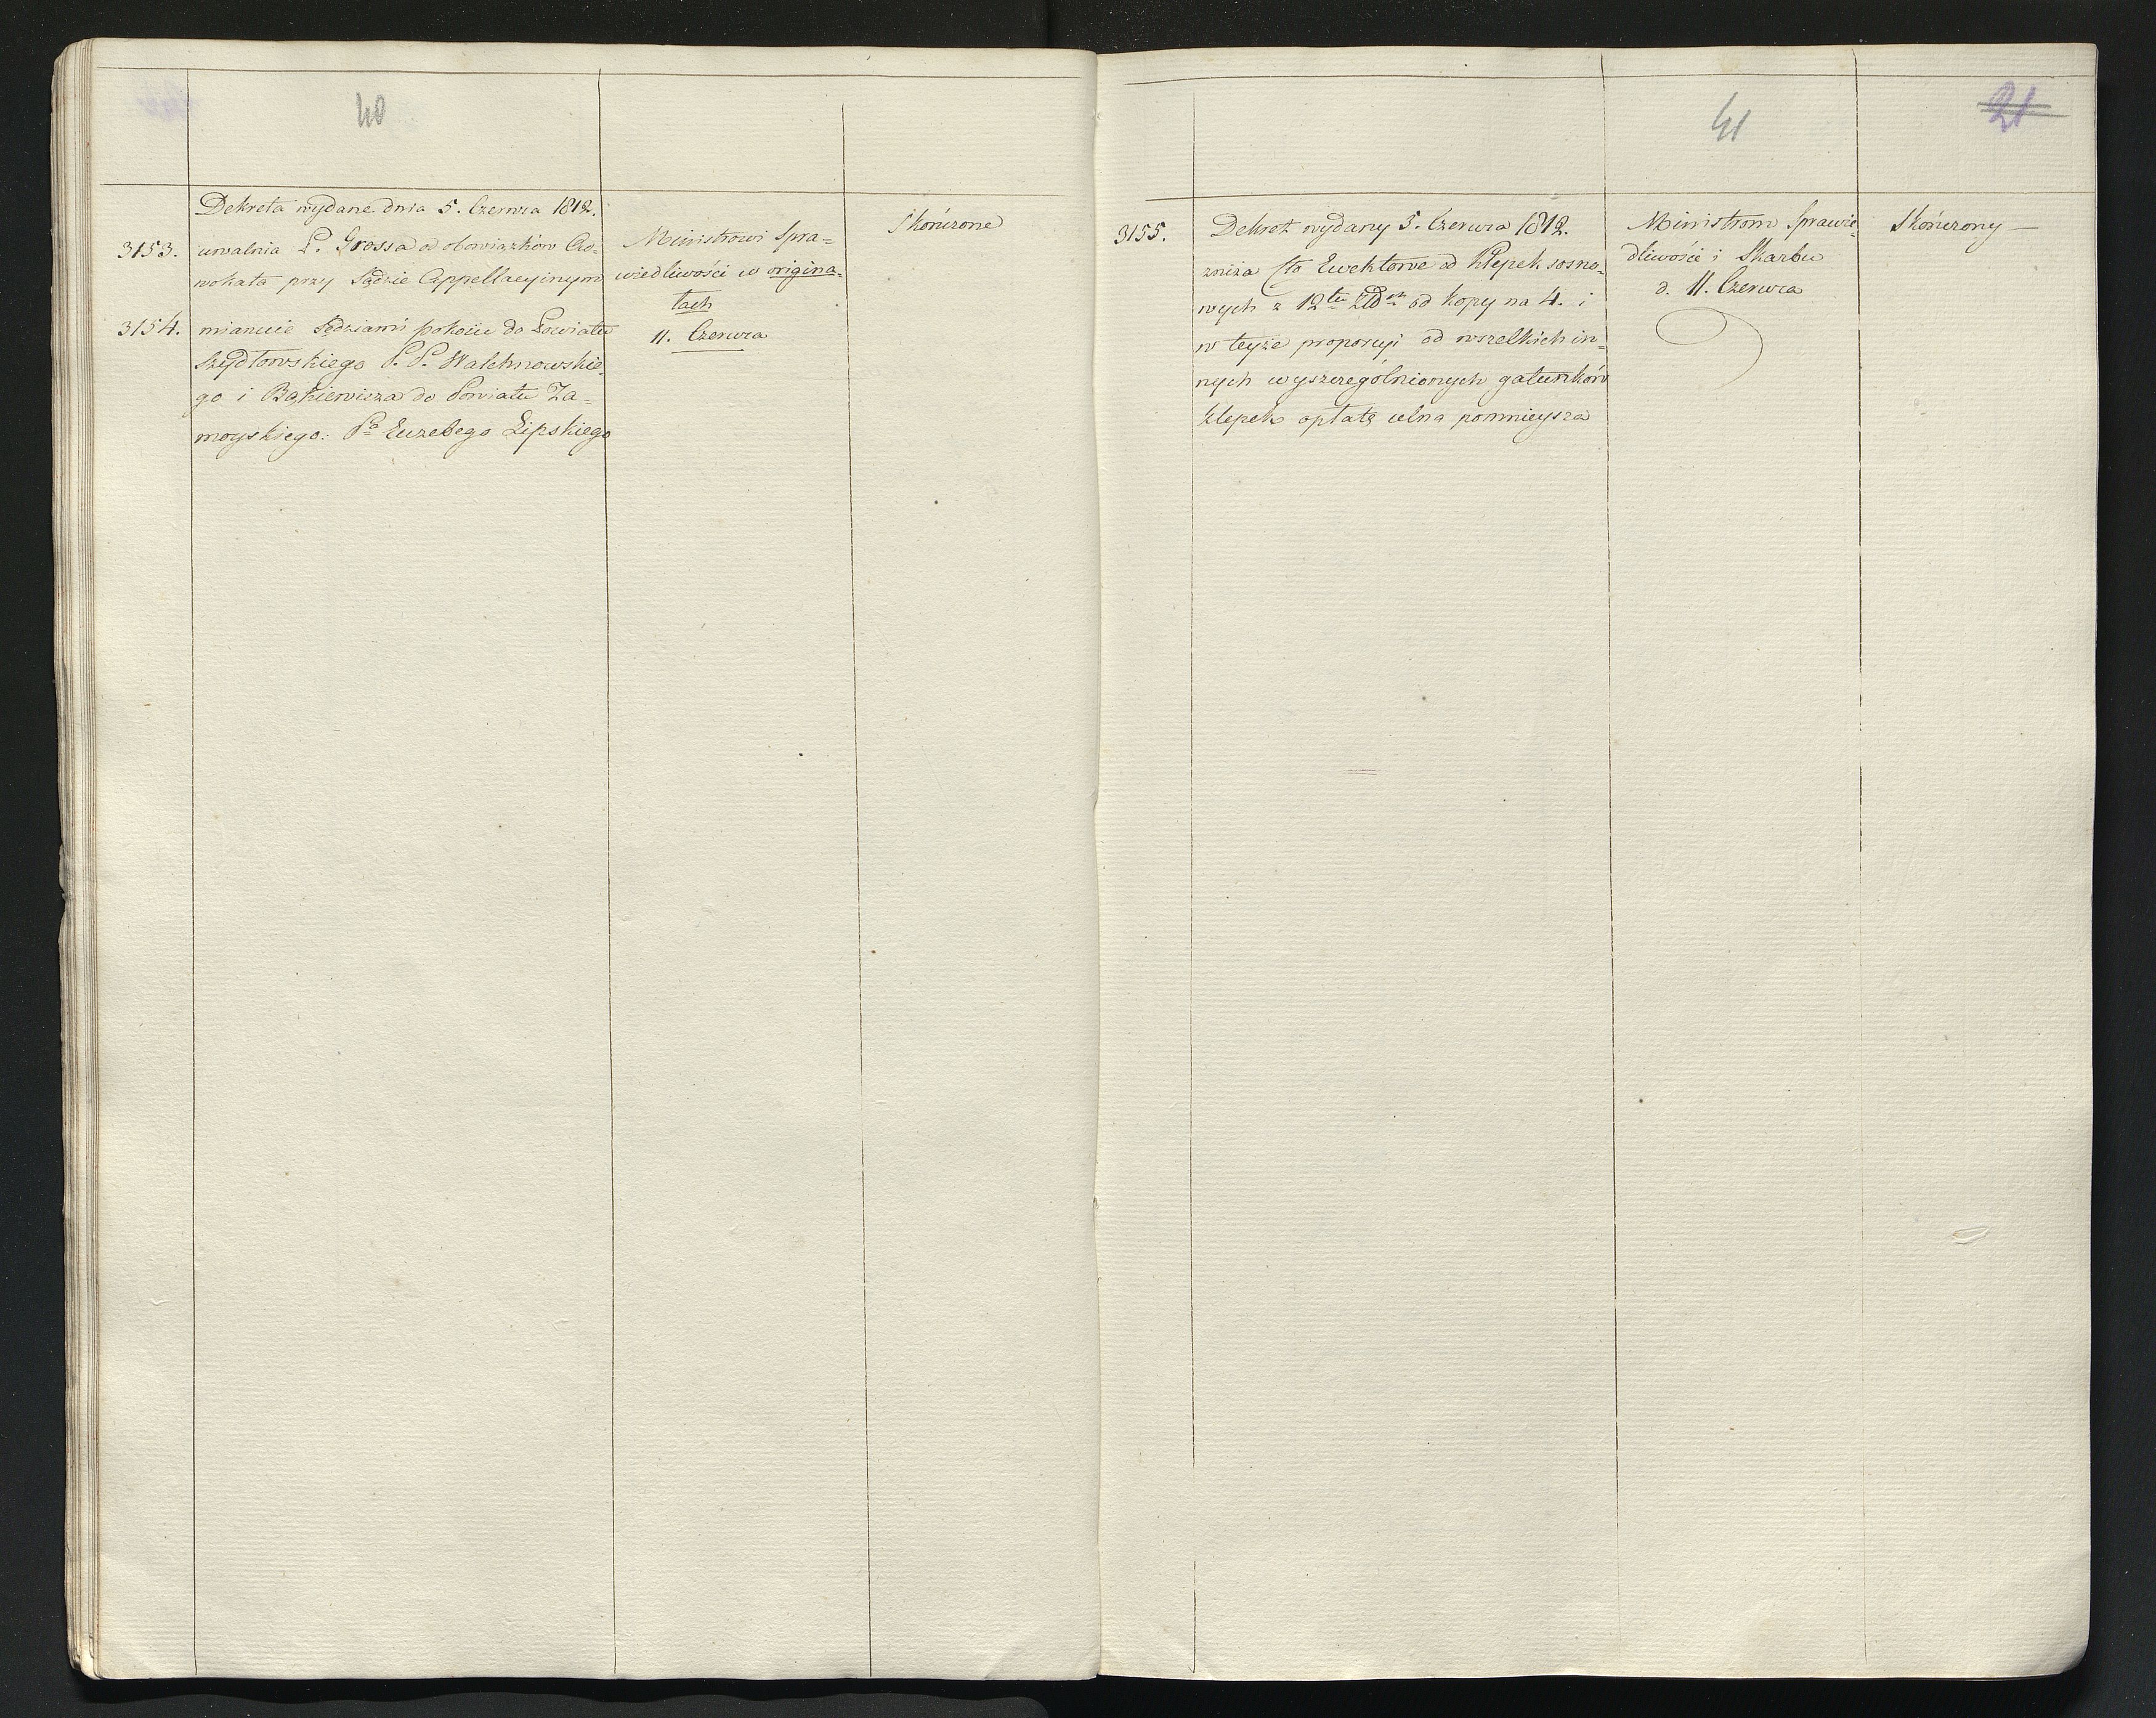 40
Dekreta wydane dnia 5. Czerwca 1812.
3153. uwalnia P. Grossa od obowiązków Ad=
wokata przy Sądzie Appellacyinym
3154. mianuie Sędziami pokoiu do Powiatu
Szydłowskiego P. P. Walchnowskie=
go i Bąkiewicza do Powiatu Za=
moyskiego: Pa Euzebego Lipskiego
Ministrowi Spra=
wiedliwości w origina=
łach
11. Czerwca
Skończone
41
21
3155. Dekret wydany 5. Czerwca 1812.
zniża Cło Ewektowe od Klepek sosno=
wych z 12tu od kopy na 4. i
w teyże proporcyi od wszelkich in=
nych wyszczególnionych gatunków
klepek opłatę celną pomnieysza
Ministrom Sprawie=
dliwości i Skarbu
d. 11. Czerwca
Skończony —